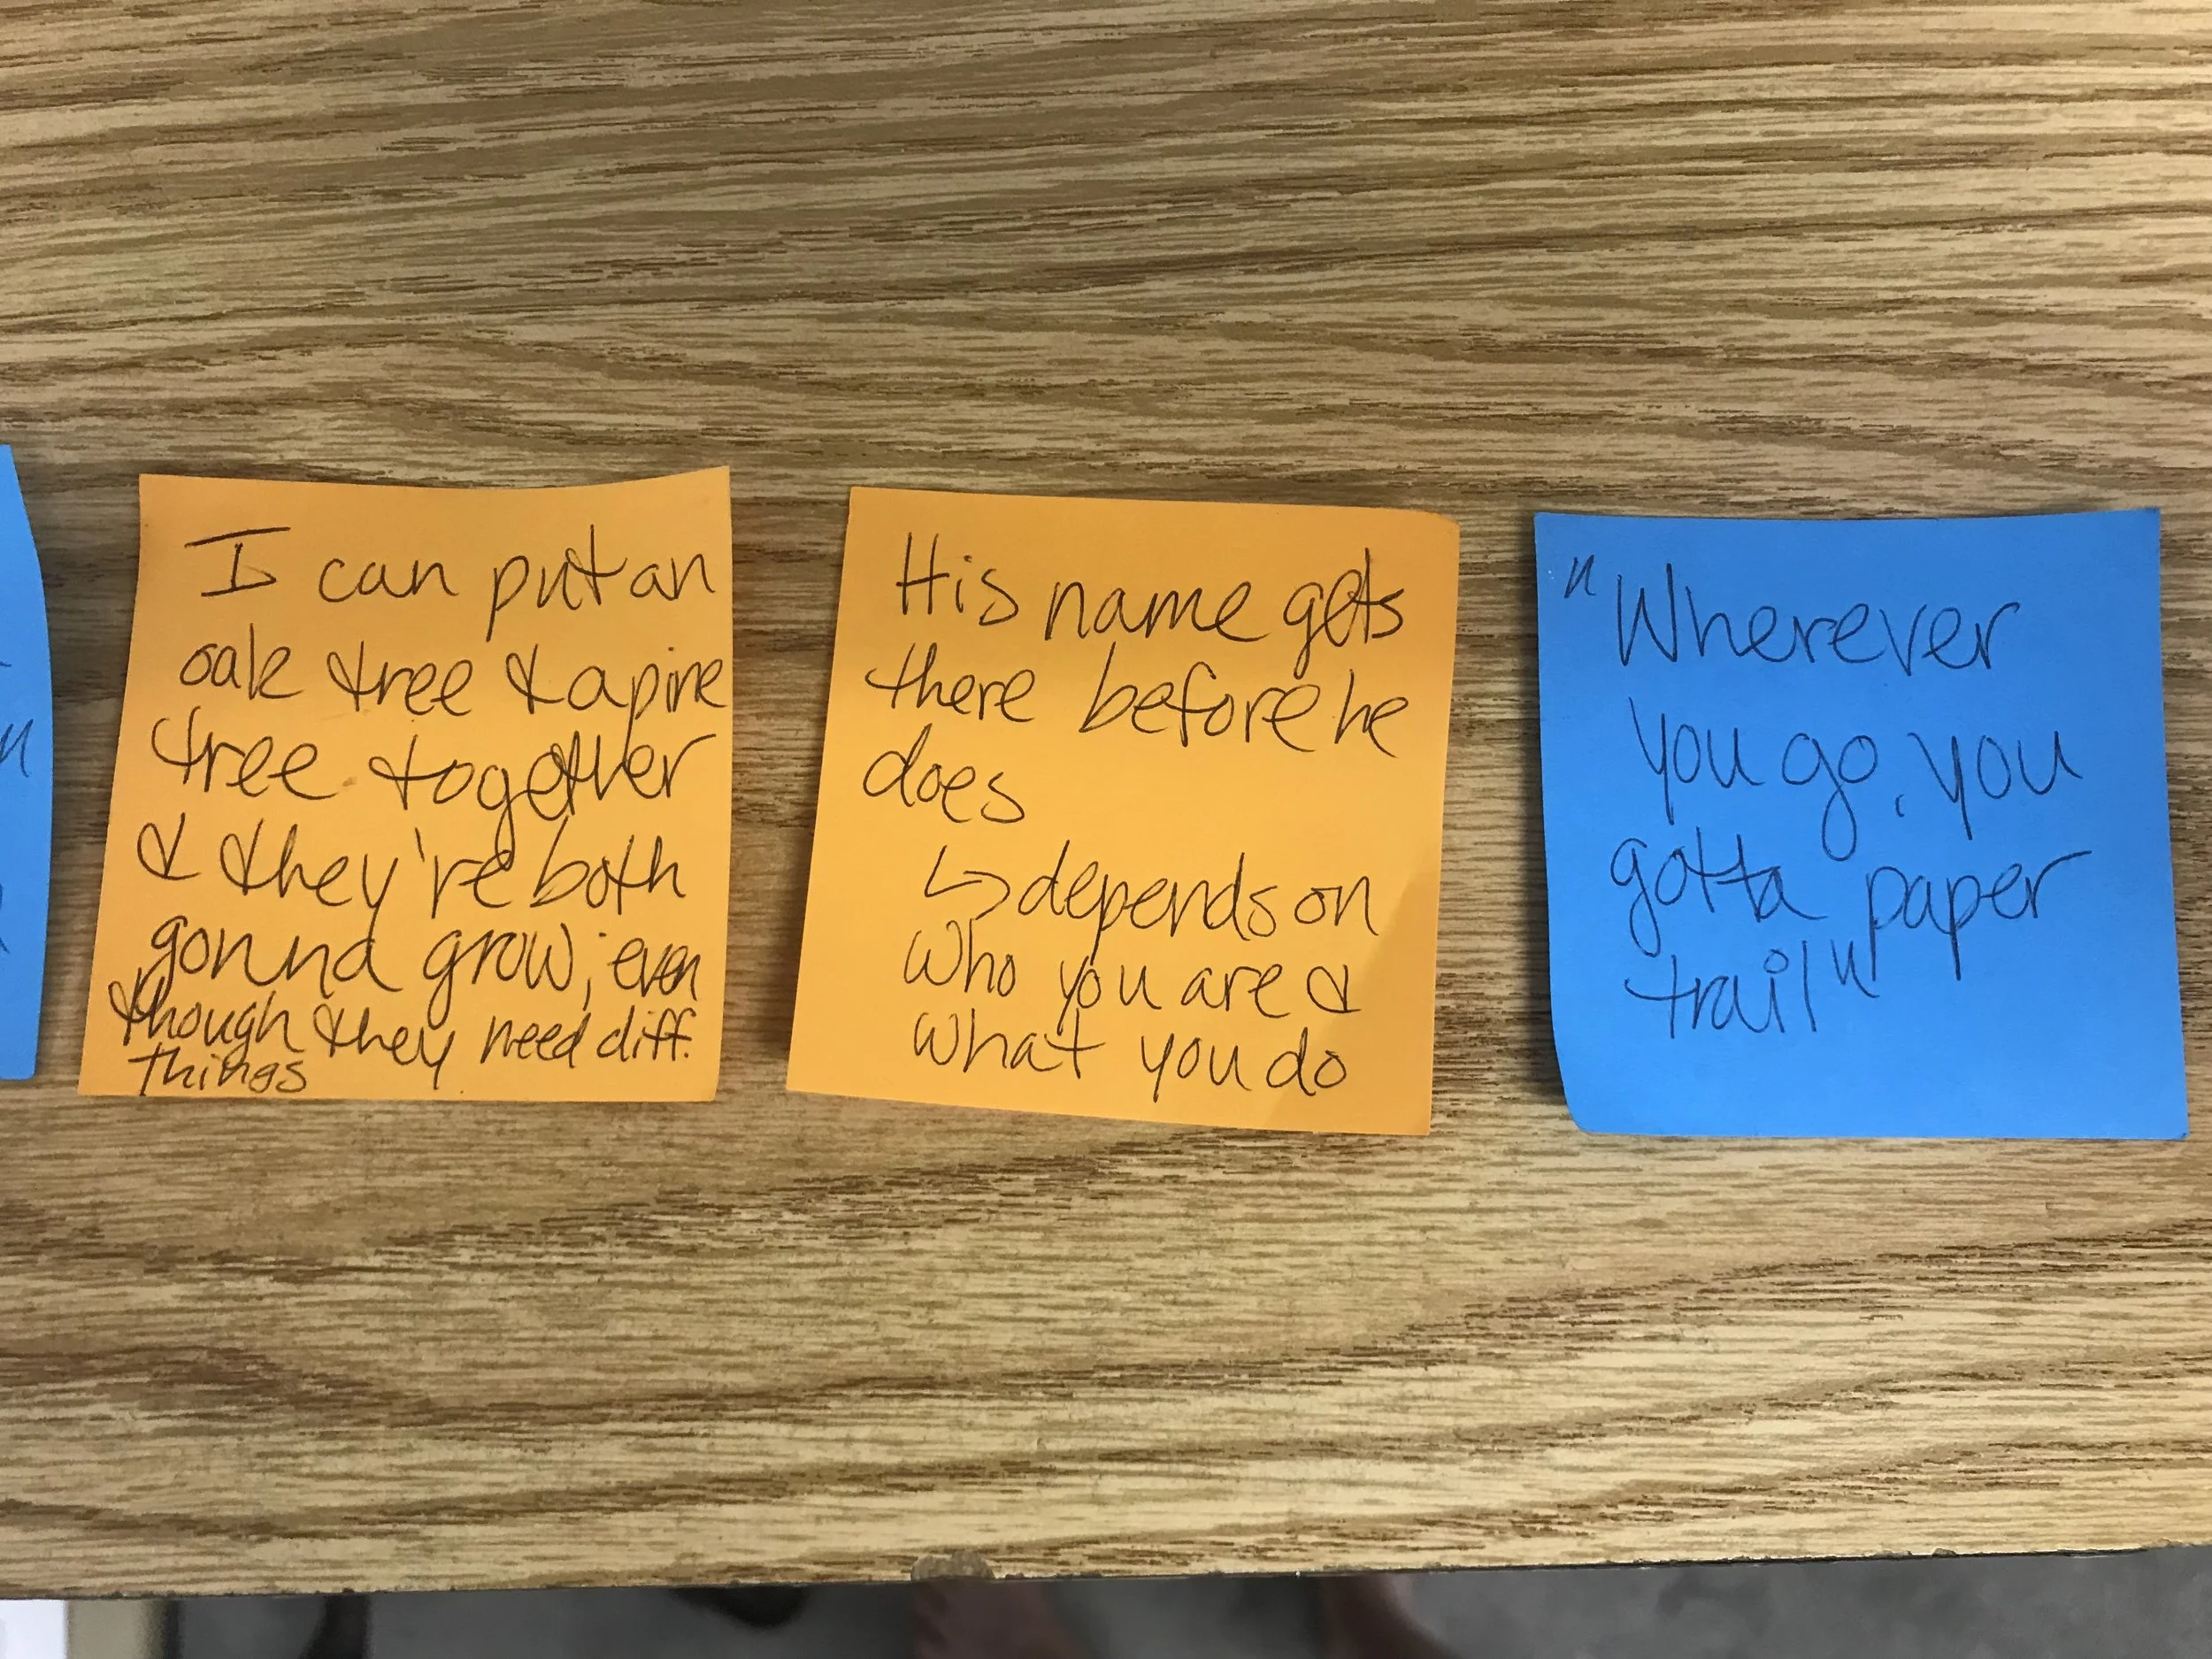 I can put an
oak tree & a pine
tree together
& they're both
gonna grow; even
though they need diff.
things
His name gets
there before he
does
↳ depends on
who you are &
what you do
"Wherever
you go, you
gotta paper
trail"